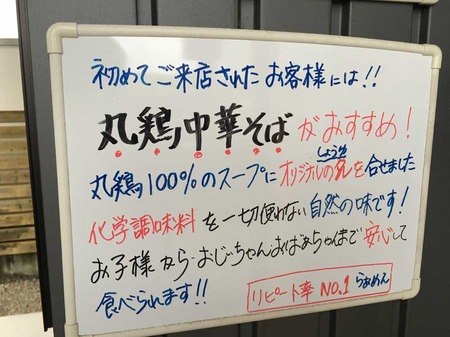 初めてご来店されたお客様には!!
丸鶏中華そばがおすすめ!
丸鶏100%のスープにオリジナルの乳を合せました
しょうゆ
化学調味料を一切使わない自然の味です!
お子様から・おじぃちゃん・おばぁちゃんまで安心して
食べられます!!
リピート率 NO.1 らぁめん